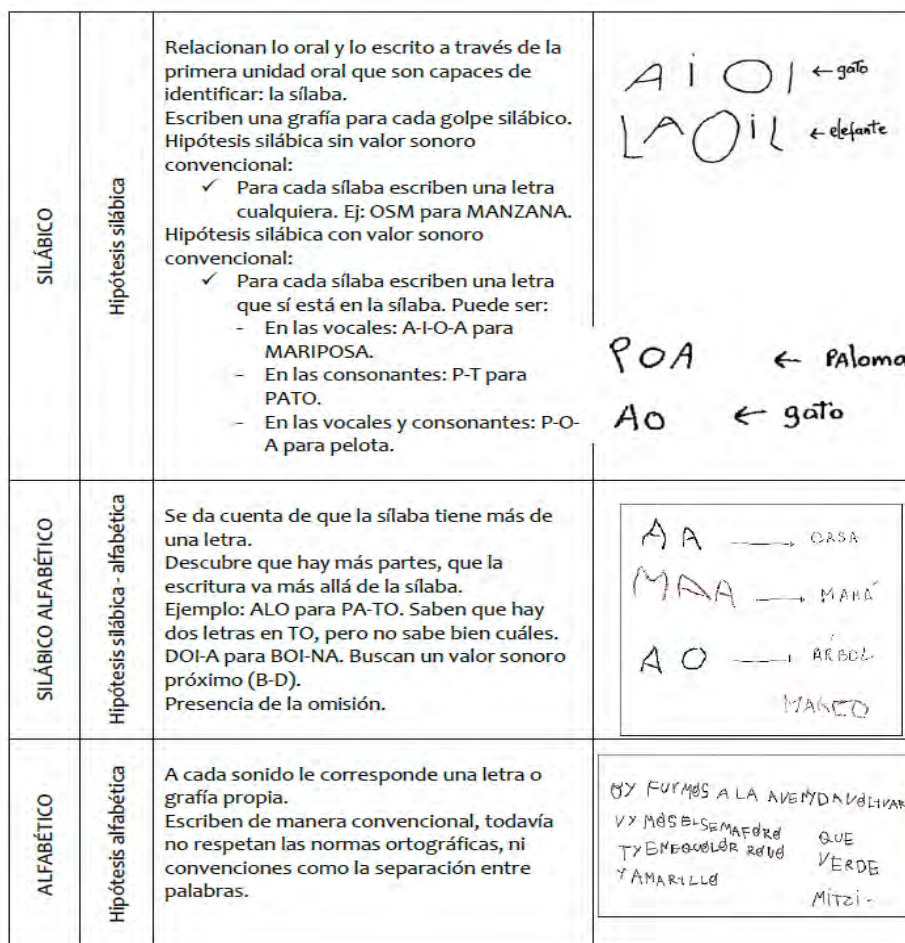 SILÁBICO
Hipótesis silábica
Relacionan lo oral y lo escrito a través de la
primera unidad oral que son capaces de
identificar: la sílaba.
Escriben una grafía para cada golpe silábico.
Hipótesis silábica sin valor sonoro
convencional:
✓ Para cada sílaba escriben una letra
cualquiera. Ej: OSM para MANZANA.
Hipótesis silábica con valor sonoro
convencional:
✓ Para cada sílaba escriben una letra
que sí está en la sílaba. Puede ser:
- En las vocales: A-I-O-A para
MARIPOSA.
- En las consonantes: P-T para
PATO.
- En las vocales y consonantes: P-O-
A para pelota.
A i O I ← gato
LAOiL ← elefante
POA ← PAloma
AO ← gato
SILÁBICO ALFABÉTICO
Hipótesis silábica - alfabética
Se da cuenta de que la sílaba tiene más de
una letra.
Descubre que hay más partes, que la
escritura va más allá de la sílaba.
Ejemplo: ALO para PA-TO. Saben que hay
dos letras en TO, pero no sabe bien cuáles.
DOI-A para BOI-NA. Buscan un valor sonoro
próximo (B-D).
Presencia de la omisión.
A A → CASA
MAA → MAMÁ
A O → ÁRBOL
MARCO
ALFABÉTICO
Hipótesis alfabética
A cada sonido le corresponde una letra o
grafía propia.
Escriben de manera convencional, todavía
no respetan las normas ortográficas, ni
convenciones como la separación entre
palabras.
OY FUYMOS A LA AVENYDAVOLIVAR
VYMOSELSEMAFORO QUE
TYENEQUOLOR ROUO VERDE
YAMARILLO MiTZi-